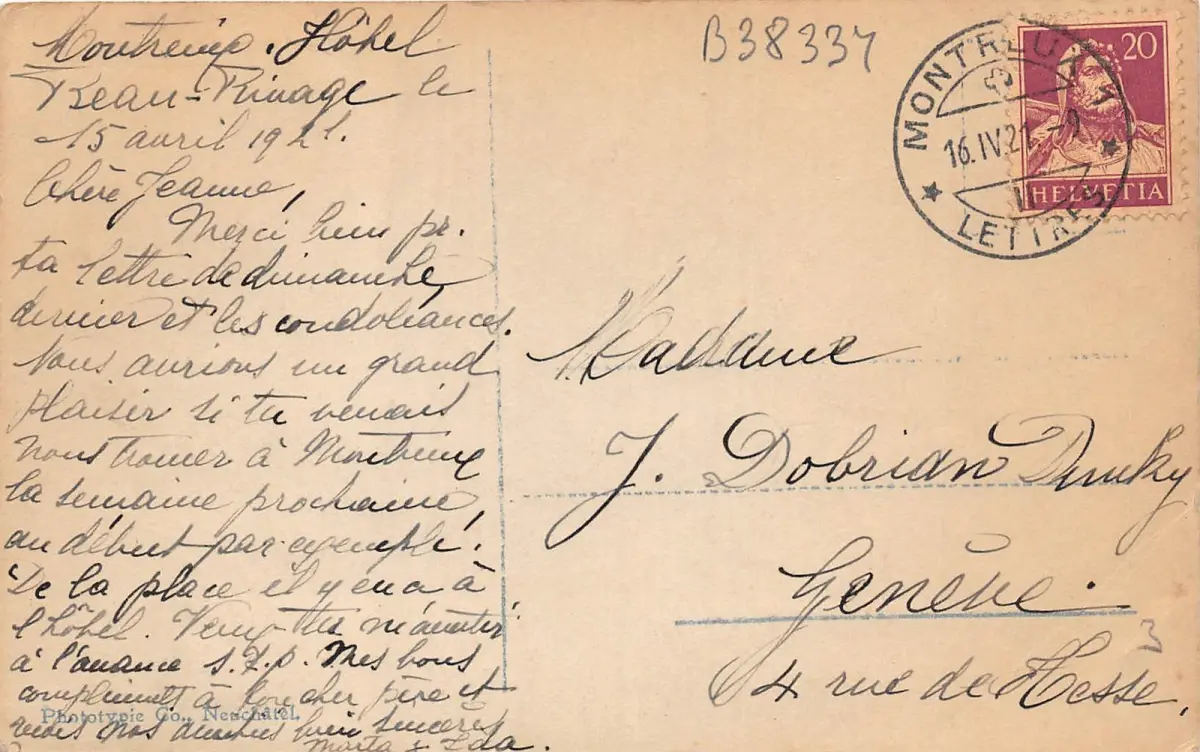 Montreux. Hôtel
Beau-Rivage le
15 avril 1921.
Chère Jeanne,
Merci bien pr.
ta lettre de dimanche
dernier et les condoléances.
Nous aurions un grand
plaisir si tu venais
nous trouver à Montreux
la semaine prochaine,
au début par exemple.
De la place il y en a à
l'hôtel. Veux-tu m'avertir
à l'avance s.t.p. Mes bons
compliments à ton cher père et
nos bien sincères
Marta & Ida.
Phototypie Co., Neuchâtel.
B38334
MONTREUX 1
16.IV.21.-9
LETTRES
20
HELVETIA
Madame
J. Dobrian
Genève.
4 rue de Hesse,
3